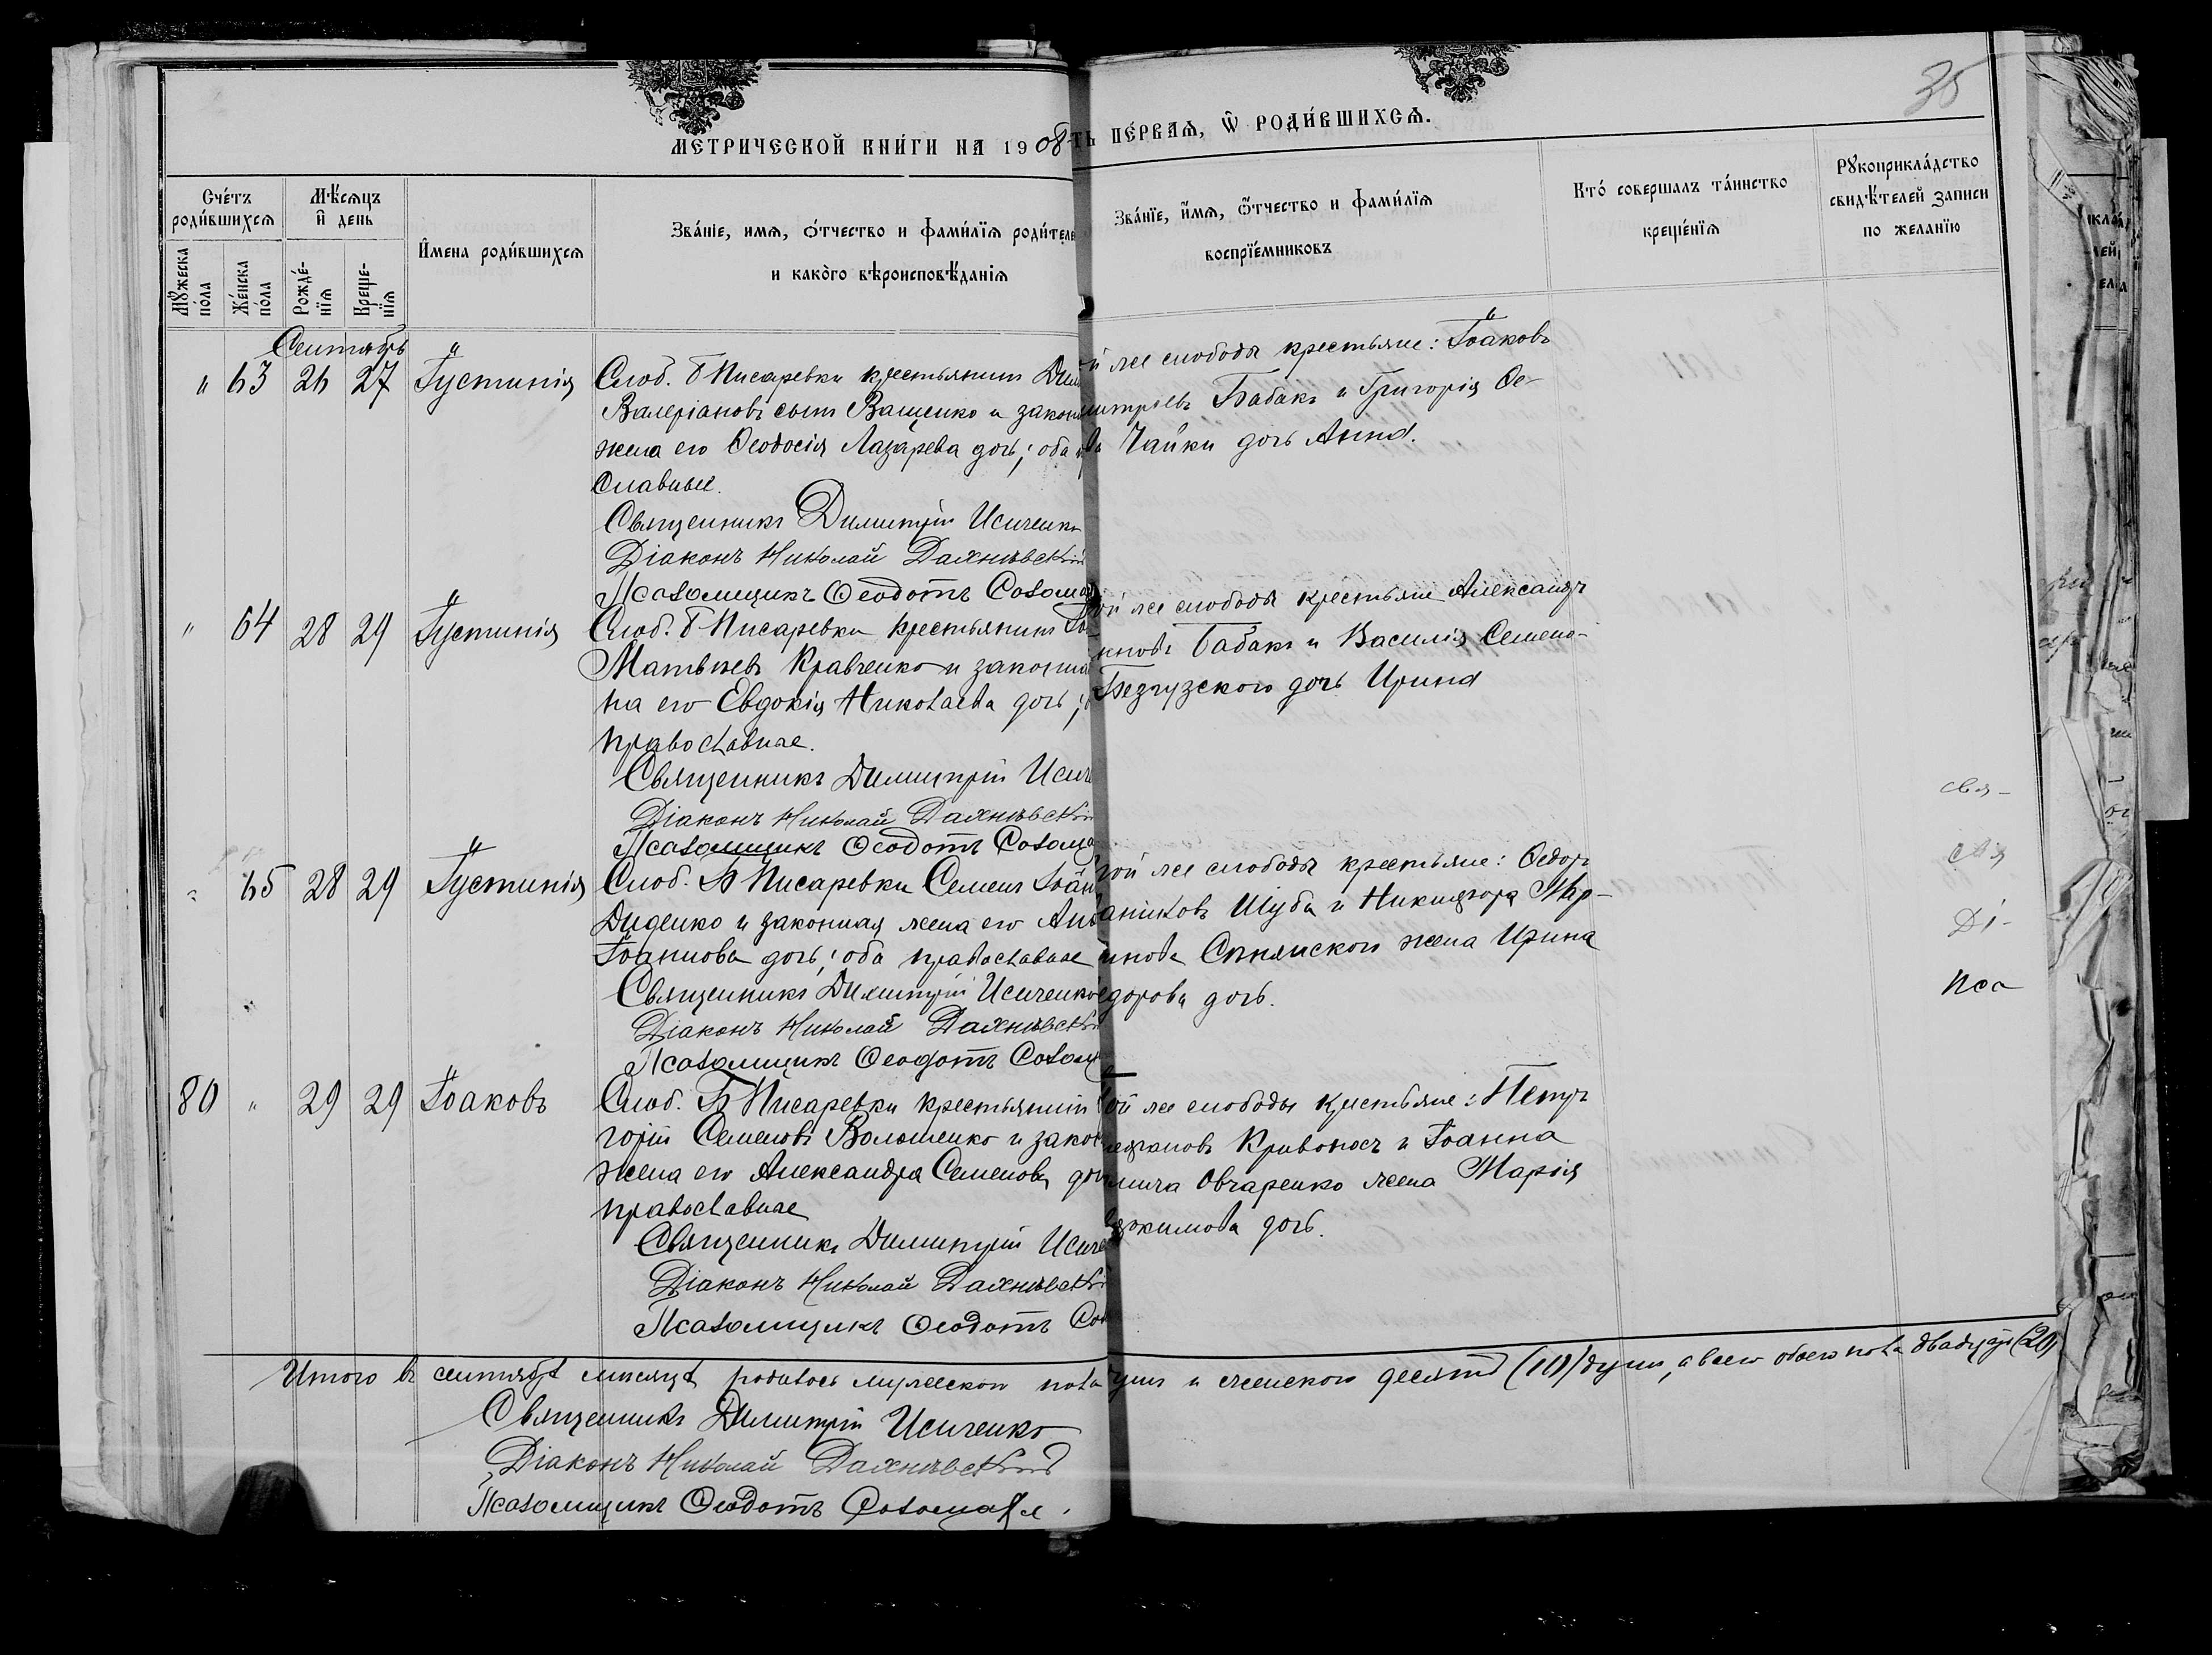 МЕТРИЧЕСКОЙ КНИ́ГИ НА 1908
ТЬ ПЕ́РВАѦ, Ѿ РОДИ́ВШИХСѦ.
35
Сче́тъ роди́вшихсѧ
Мѣ́сѧцъ и҆ день
И҆мена роди́вшихсѧ
Зва́нїе, имѧ, ѻ́тчество и фами́лїѧ роди́теле
и како́гѡ вѣроисповѣ́данїѧ
Зва́нїе, и҆́мѧ, ѻ҆́тчество и фами́лїѧ
воспрїе́мниковъ
Кто́ соверша́лъ та́инство
креще́нїѧ
Рꙋкоприкла́дство
свидѣ́телей записи
по жела́нїю
Мꙋ́жеска по́ла
Же́нска по́ла
Рожде́нїѧ
Креще́нїѧ
Сентябрь
" 63 26 27 Іустинія
Слоб. Б Писаревки крестьянинъ Дим
Валеріановъ сынъ Ващенко и закон
жена его Ѳеодосія Лазарева дочь; оба
славные.
Священникъ Димитрій Исиченко
Діаконъ Николай Дахнѣвскій
Псаломщикъ Ѳеодотъ Солома
й же слободы крестьяне: Іоаковъ
митріевъ Бабакъ и Григорія Ѳе-
ва Чайки дочь Анна.
" 64 28 29 Іустинія
Слоб. Б Писаревки крестьянинъ Іо
Матвѣевъ Кравченко и законная
на его Евдокія Николаева дочь;
православные.
Священникъ Димитрій Исич
Діаконъ Николай Дахнѣвскій
Псаломщикъ Ѳеодотъ Солома
ой же слободы крестьяне Александръ
нновъ Бабакъ и Василія Семено-
Безгузского дочь Ирина
" 65 28 29 Іустинія
Слоб. Б Писаревки Семенъ Іоан
Диденко и законная жена его Анн
Іоаннова дочь; оба православные
Священникъ Димитрій Исиченко
Діаконъ Николай Дахнѣвскій
Псаломщикъ Ѳеодотъ Солом
той же слободы крестьяне: Ѳедоръ
Шуба и Никифора Мар-
инова жена Ирина
едорова дочь.
свя-
Ді-
Пса
80 " 29 29 Іоаковъ
Слоб. Б Писаревки крестьянинъ
горій Семеновъ Волошенко и зако
жена его Александра Семенова доч
православные
Священникъ Димитрій Исиче
Діаконъ Николай Дахнѣвскій
Псаломщикъ Ѳеодотъ Сол
ой же слободы крестьяне: Петръ
ефановъ Кривоносъ и Іоанна
мича Овчаренко жена Марія
Іоакимова дочь.
Итого въ сентябрѣ мѣсяцѣ родилось мужеского пола
душъ и женского десять (10) душъ, а всего обоего пола двадцать (20)
Священникъ Димитрій Исиченко
Діаконъ Николай Дахнѣвскій
Псаломщикъ Ѳеодотъ Соломаха.